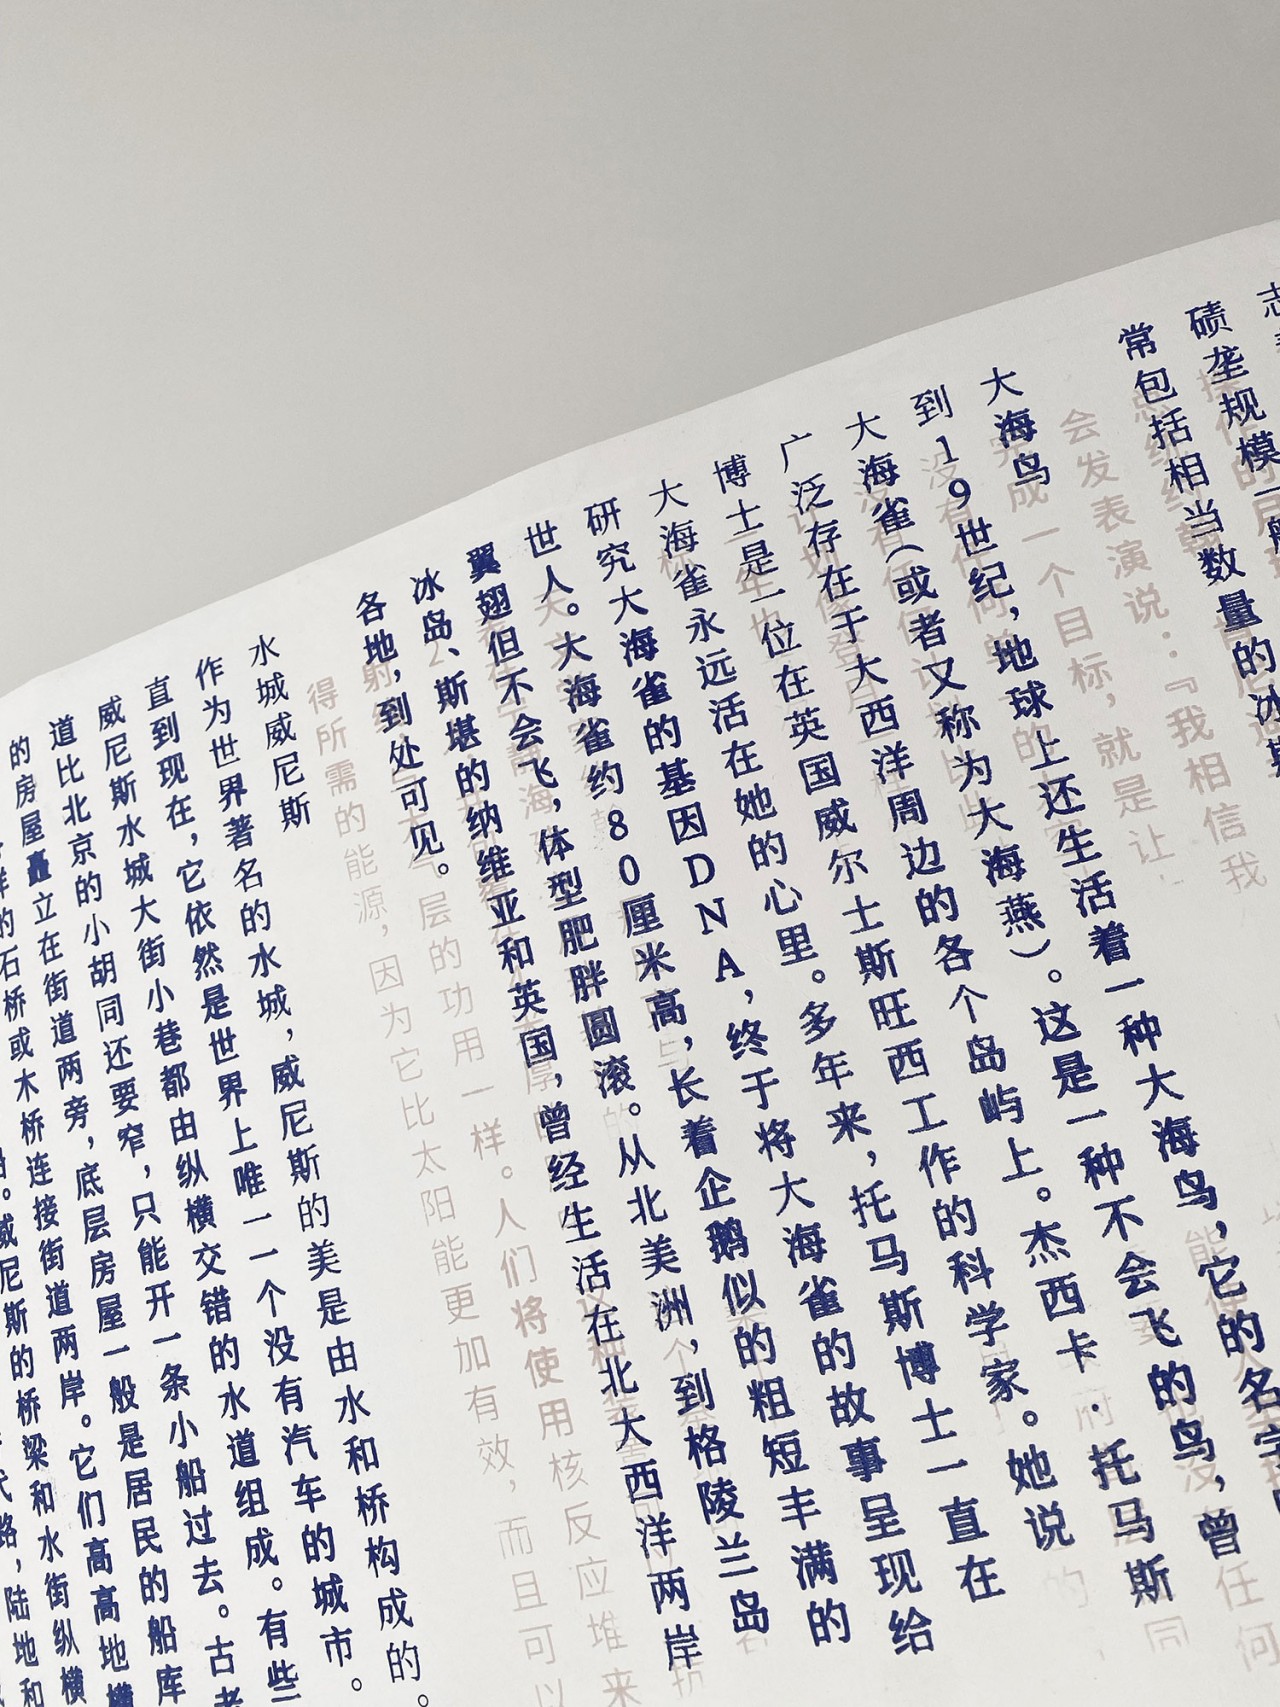 志
碛垄规模一般
常包括相当数量的冰
会发表演说：『我相信我
完成一个目标，就是让
大海鸟
到19世纪，地球上还生活着一种大海鸟，它的名字
大海雀（或者又称为大海燕）。这是一种不会飞的鸟，曾
广泛存在于大西洋周边的各个岛屿上。杰西卡·托马斯
博士是一位在英国威尔士斯旺西工作的科学家。她说
大海雀永远活在她的心里。多年来，托马斯博士一直在
研究大海雀的基因DNA，终于将大海雀的故事呈现给
世人。大海雀约80厘米高，长着企鹅似的粗短丰满的
翼翅但不会飞，体型肥胖圆滚。从北美洲，到格陵兰岛
冰岛、斯堪的纳维亚和英国，曾经生活在北大西洋两岸
各地，到处可见。
气层的功用一样。人们将使用核反应堆来
得所需的能源，因为它比太阳能更加有效，而且可以
水城威尼斯
作为世界著名的水城，威尼斯的美是由水和桥构成的。
直到现在，它依然是世界上唯一一个没有汽车的城市。
威尼斯水城大街小巷都由纵横交错的水道组成。有些
道比北京的小胡同还要窄，只能开一条小船过去。古老
的房屋矗立在街道两旁，底层房屋一般是居民的船库
样的石桥或木桥连接街道两岸。它们高高地横
威尼斯的桥梁和水街纵横
路，陆地和